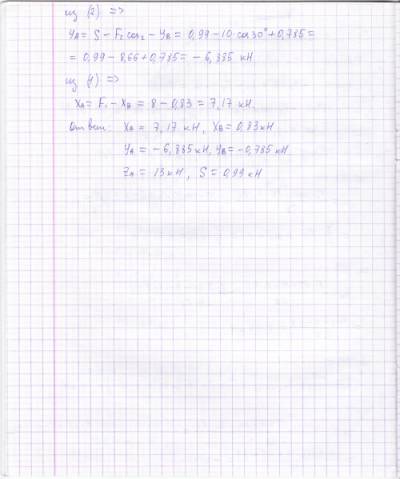 из (2) =>
YA = S - F2 cos2 - YB = 0,99 - 10 cos30° + 0,785 =
= 0,99 - 8,66 + 0,785 = - 6,885 кН.
из (1) =>
XA = F1 - XB = 8 - 0,83 = 7,17 кН.
Ответ: XA = 7,17 кН, XB = 0,83 кН
YA = -6,885 кН, YB = -0,785 кН
ZA = 13 кН, S = 0,99 кН